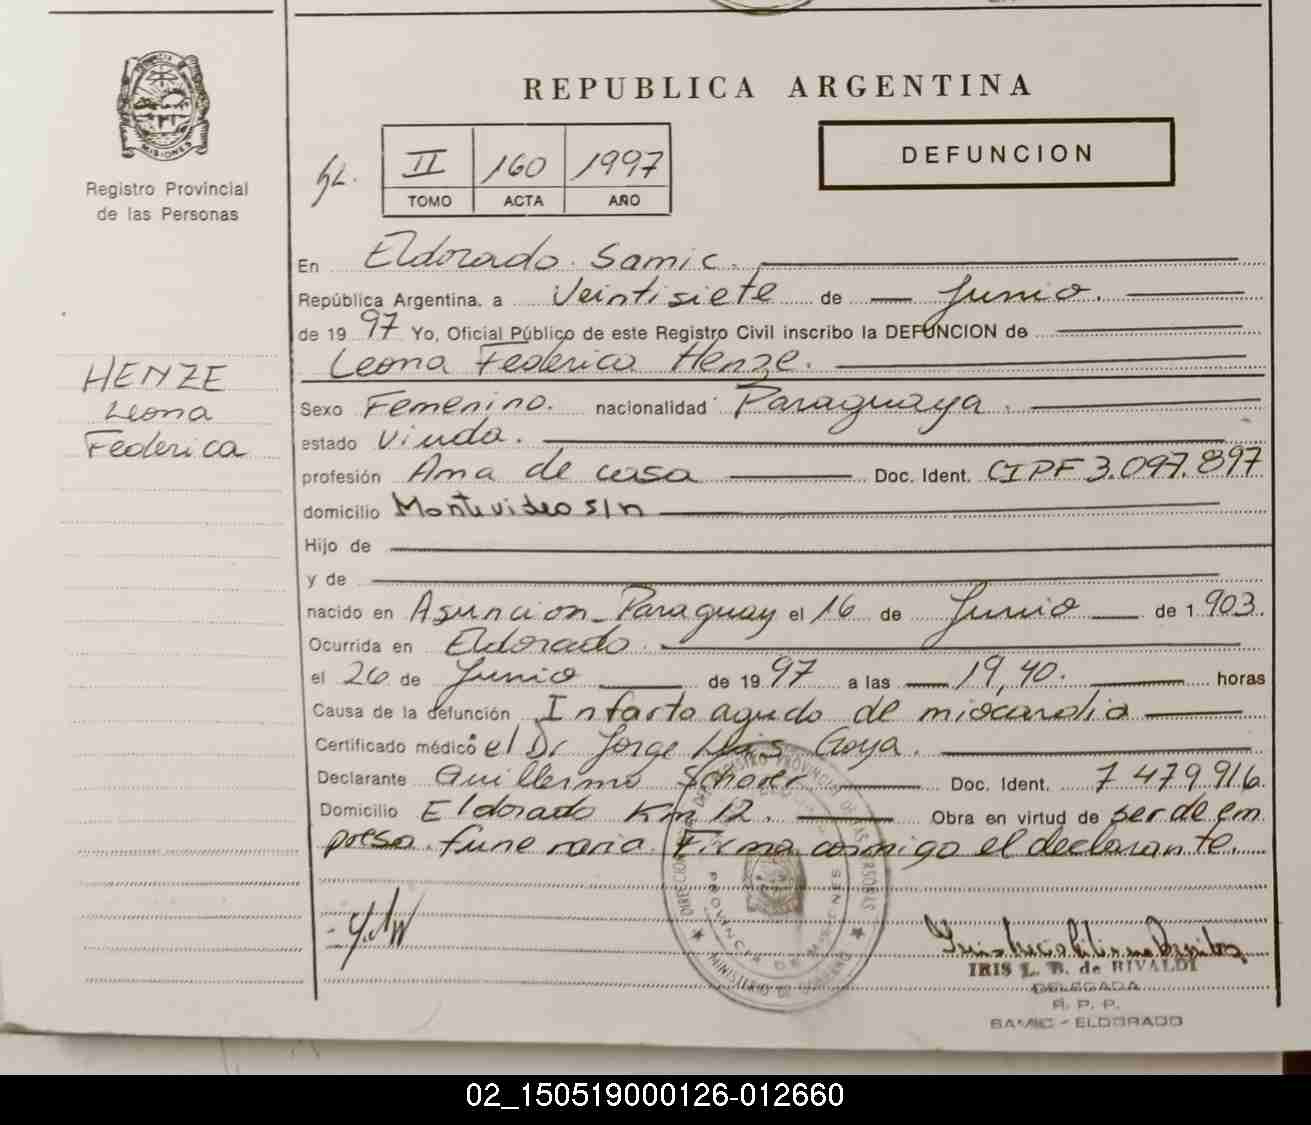 MISIONES
Registro Provincial
de las Personas
REPUBLICA ARGENTINA
II 160 1997
TOMO ACTA AÑO
DEFUNCION
En Eldorado. Samic.
República Argentina, a Veintisiete de Junio.
de 1997 Yo, Oficial Público de este Registro Civil inscribo la DEFUNCION de
Leona Federica Henze.
HENZE
Leona
Federica
Sexo Femenino. nacionalidad Paraguaya.
estado Viuda.
profesión Ama de casa Doc. Ident. CIPF 3.097.897
domicilio Montevideo s/n
Hijo de
y de
nacido en Asuncion-Paraguay el 16 de Junio de 1.903.
Ocurrida en Eldorado.
el 26 de Junio de 1997 a las 19,40. horas
Causa de la defunción Infarto agudo de miocardio
Certificado médico el Dr Jorge Luis Goya.
Declarante Guillermo Schorer Doc. Ident. 7479.916.
Domicilio Eldorado Km 12. Obra en virtud de ser de em
presa funeraria. Firma conmigo el declarante.
DIRECCION DEL REGISTRO PROVINCIAL DE LAS PERSONAS
PROVINCIA DE MISIONES
MINISTERIO DE GOBIERNO
IRIS L. B. de RIVALDI
DELEGADA
R. P. P.
SAMIC - ELDORADO
02_150519000126-012660